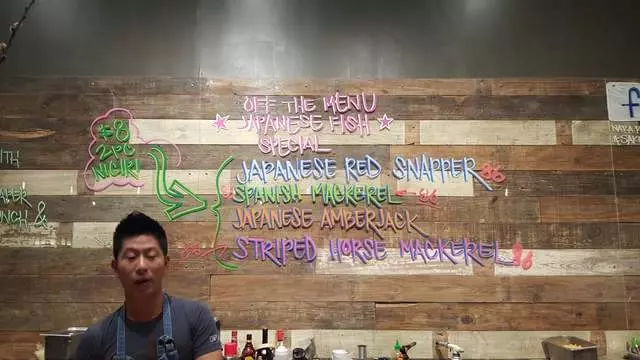 OFF THE MENU
JAPANESE FISH
SPECIAL
$8
2PC
NIGIRI
JAPANESE RED SNAPPER 86
SPANISH MACKEREL 86
JAPANESE AMBERJACK
STRIPED HORSE MACKEREL 86
f